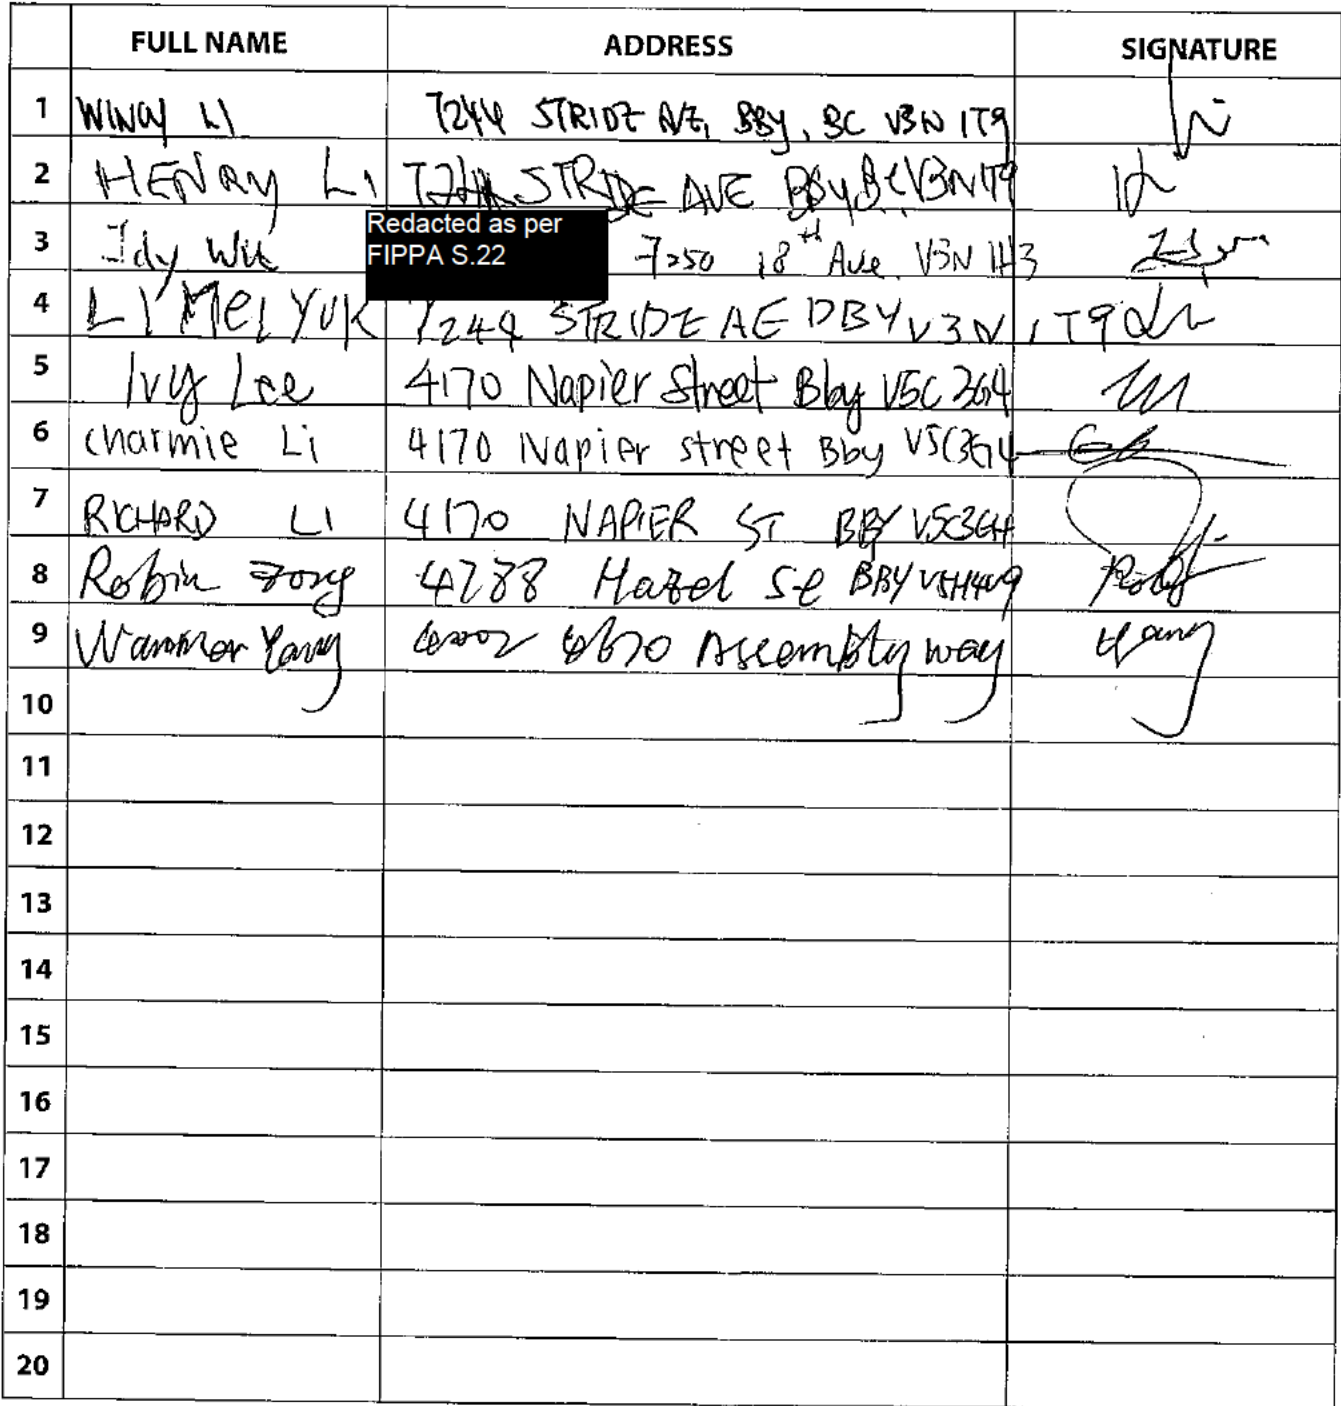 FULL NAME ADDRESS SIGNATURE
1 WINDY LI 7244 STRIDE AVE, BBY, BC V3N 1T9 Li
2 HENRY LI 7244 STRIDE AVE BBY BC V3N1T9
Redacted as per
FIPPA S.22
3 Idy Wu 7250 18th Ave. V3N 1H3
4 LI MEI YUK 7244 STRIDE AE DBY V3N 1T9
5 Ivy Lee 4170 Napier Street Bby V5C 3G4
6 charmie Li 4170 Napier street Bby V5C3G4
7 RICHARD LI 4170 NAPIER ST BBY V5C3G4
8 Robin Zong 4288 Hazel St BBY
9 Yang 6670 Assembly way Yang
10
11
12
13
14
15
16
17
18
19
20